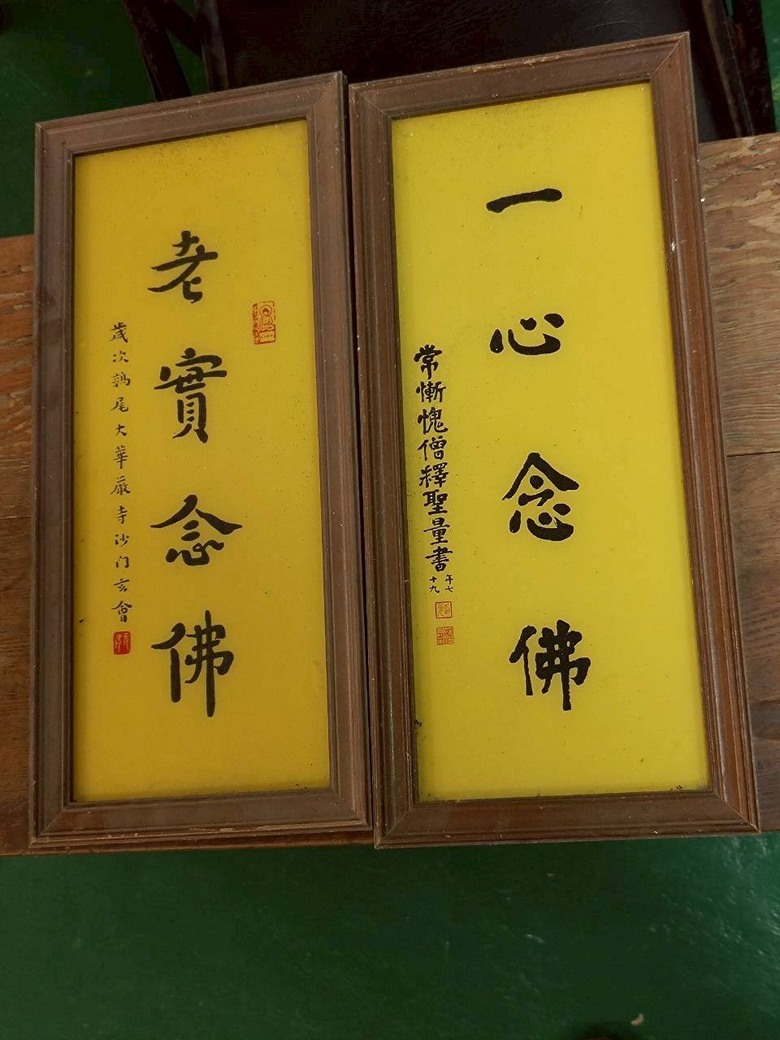 一心念佛
常慚愧僧釋聖量書
年七十九
老實念佛
歲次鶉尾大華嚴寺沙门玄會